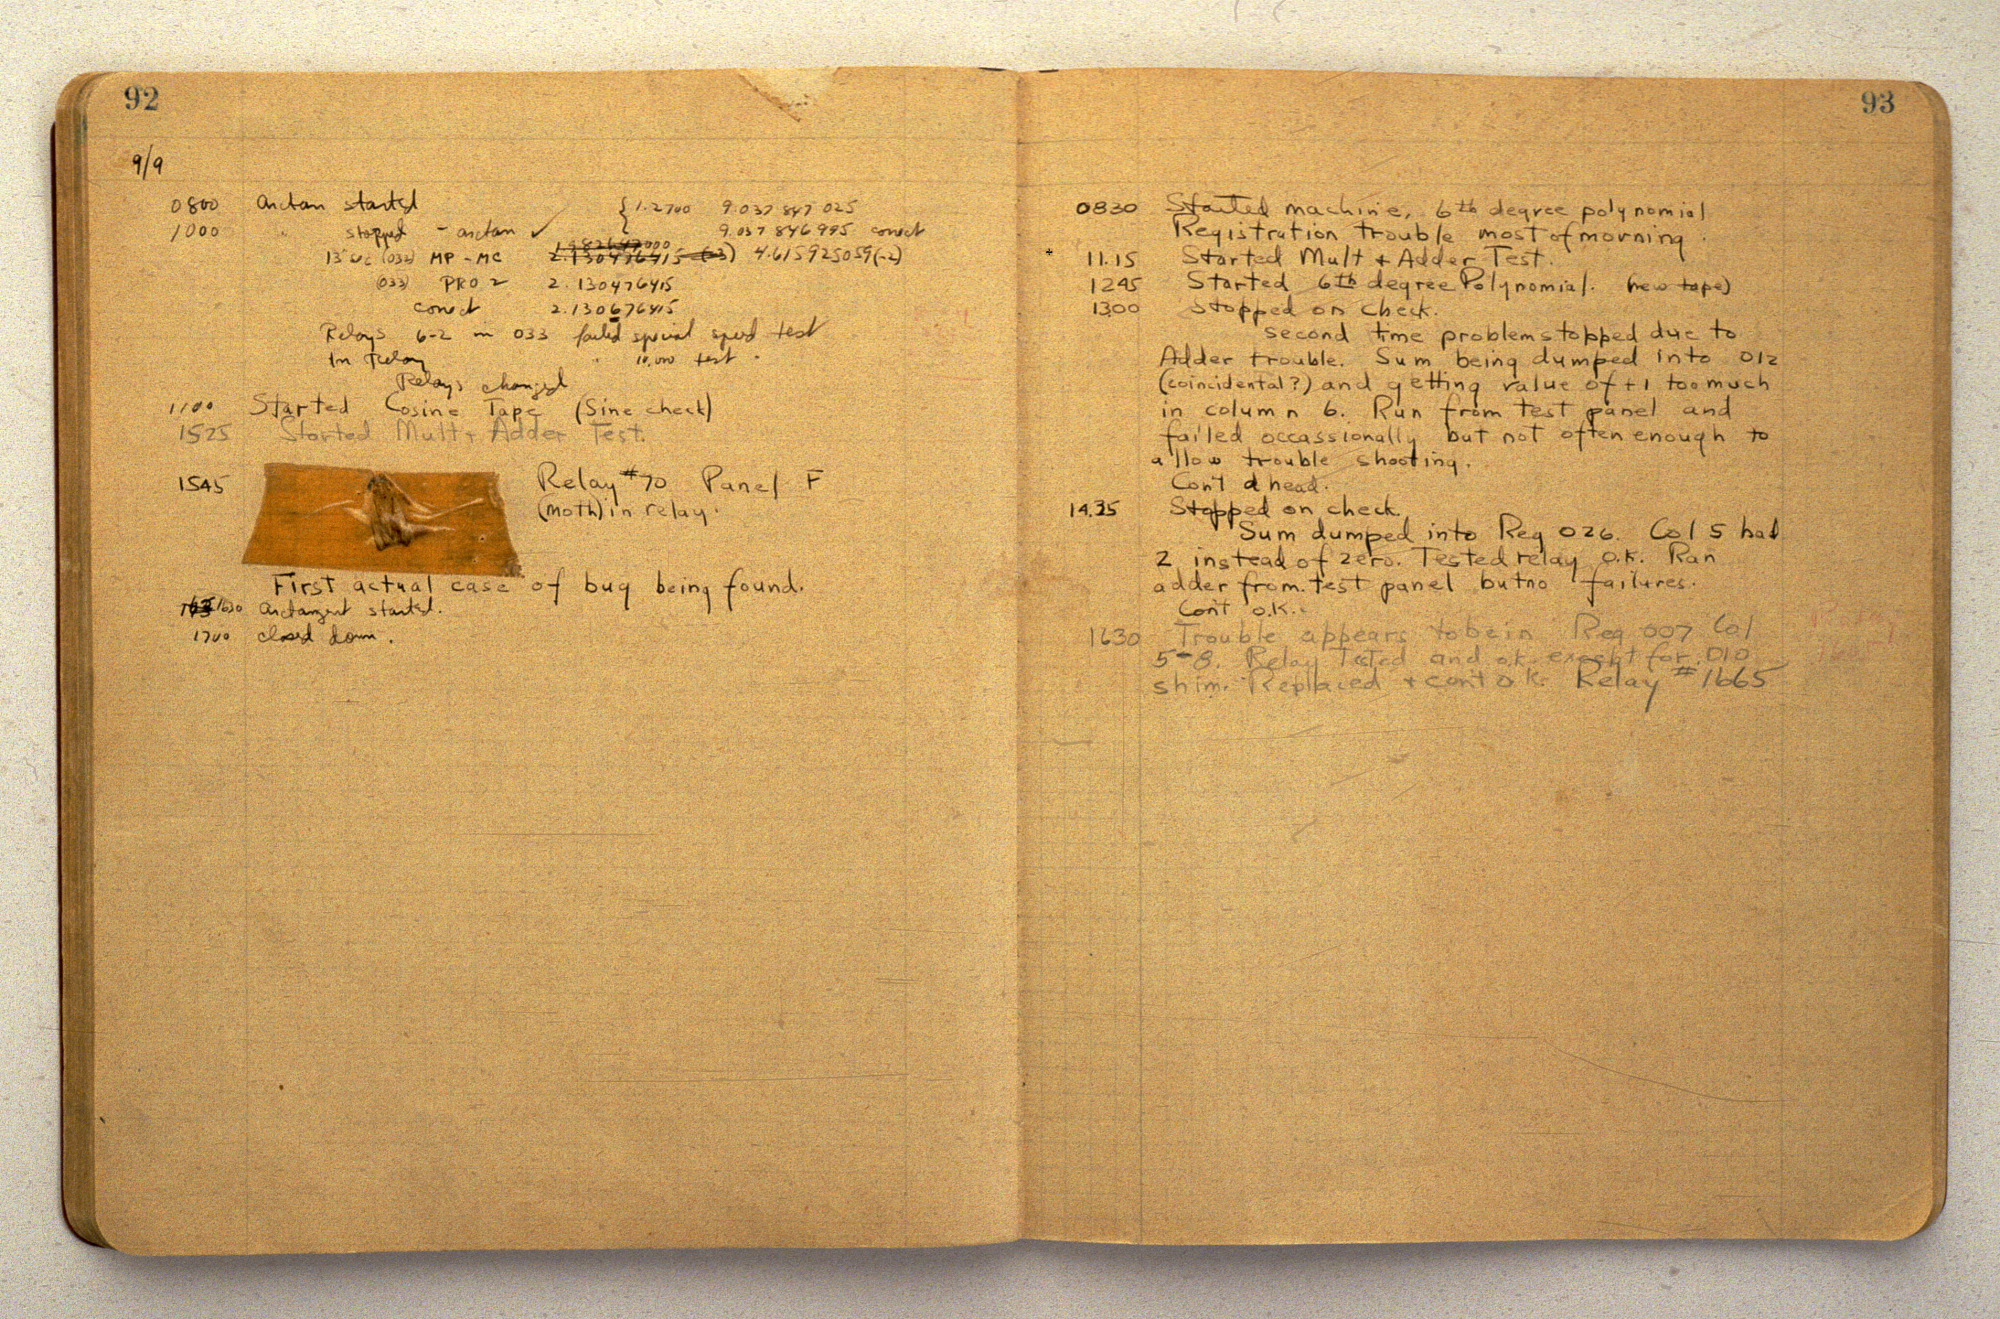 92
9/9
0800 arctan started { 1.2700 9.037 847 025
1000 " stopped - arctan ✓ 9.037 846 995 correct
13" uc (032) MP - MC 2.130476415 (-3) 4.615925059(-2)
(033) PRO 2 2.130476415
correct 2.130676415
Relays 6-2 in 033 failed special speed test
In Relay " 10,000 test .
Relays changed
1100 Started Cosine Tape (Sine check)
1525 Started Mult + Adder Test.
1545 Relay #70 Panel F
(moth) in relay.
First actual case of bug being found.
1630 arctangent started.
1700 closed down.
93
0830 Started machine, 6th degree polynomial
Registration trouble most of morning.
11.15 Started Mult + Adder Test.
1245 Started 6th degree Polynomial. (new tape)
1300 Stopped on check.
Second time problem stopped due to
Adder trouble. Sum being dumped into 012
(coincidental?) and getting value of +1 too much
in column 6. Run from test panel and
failed occassionally but not often enough to
allow trouble shooting.
Con't ahead.
14.35 Stopped on check.
Sum dumped into Reg 026. Col 5 had
2 instead of zero. Tested relay O.K. Ran
adder from test panel but no failures.
Con't O.K.
1630 Trouble appears to be in Reg 007 Col
5-8. Relay Tested and o.k. except for 010
shim. Replaced + con't O.K. Relay #1665